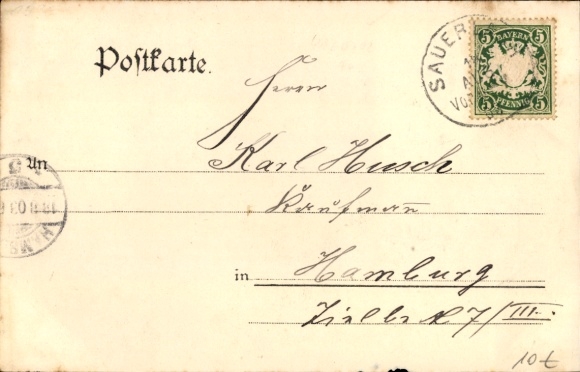 Postkarte.
BAYERN
5 5
5 PFENNIG 5
SAUER
VOR
Herrn
An Karl Husch
Kaufmann
in Hamburg
7/III.
10